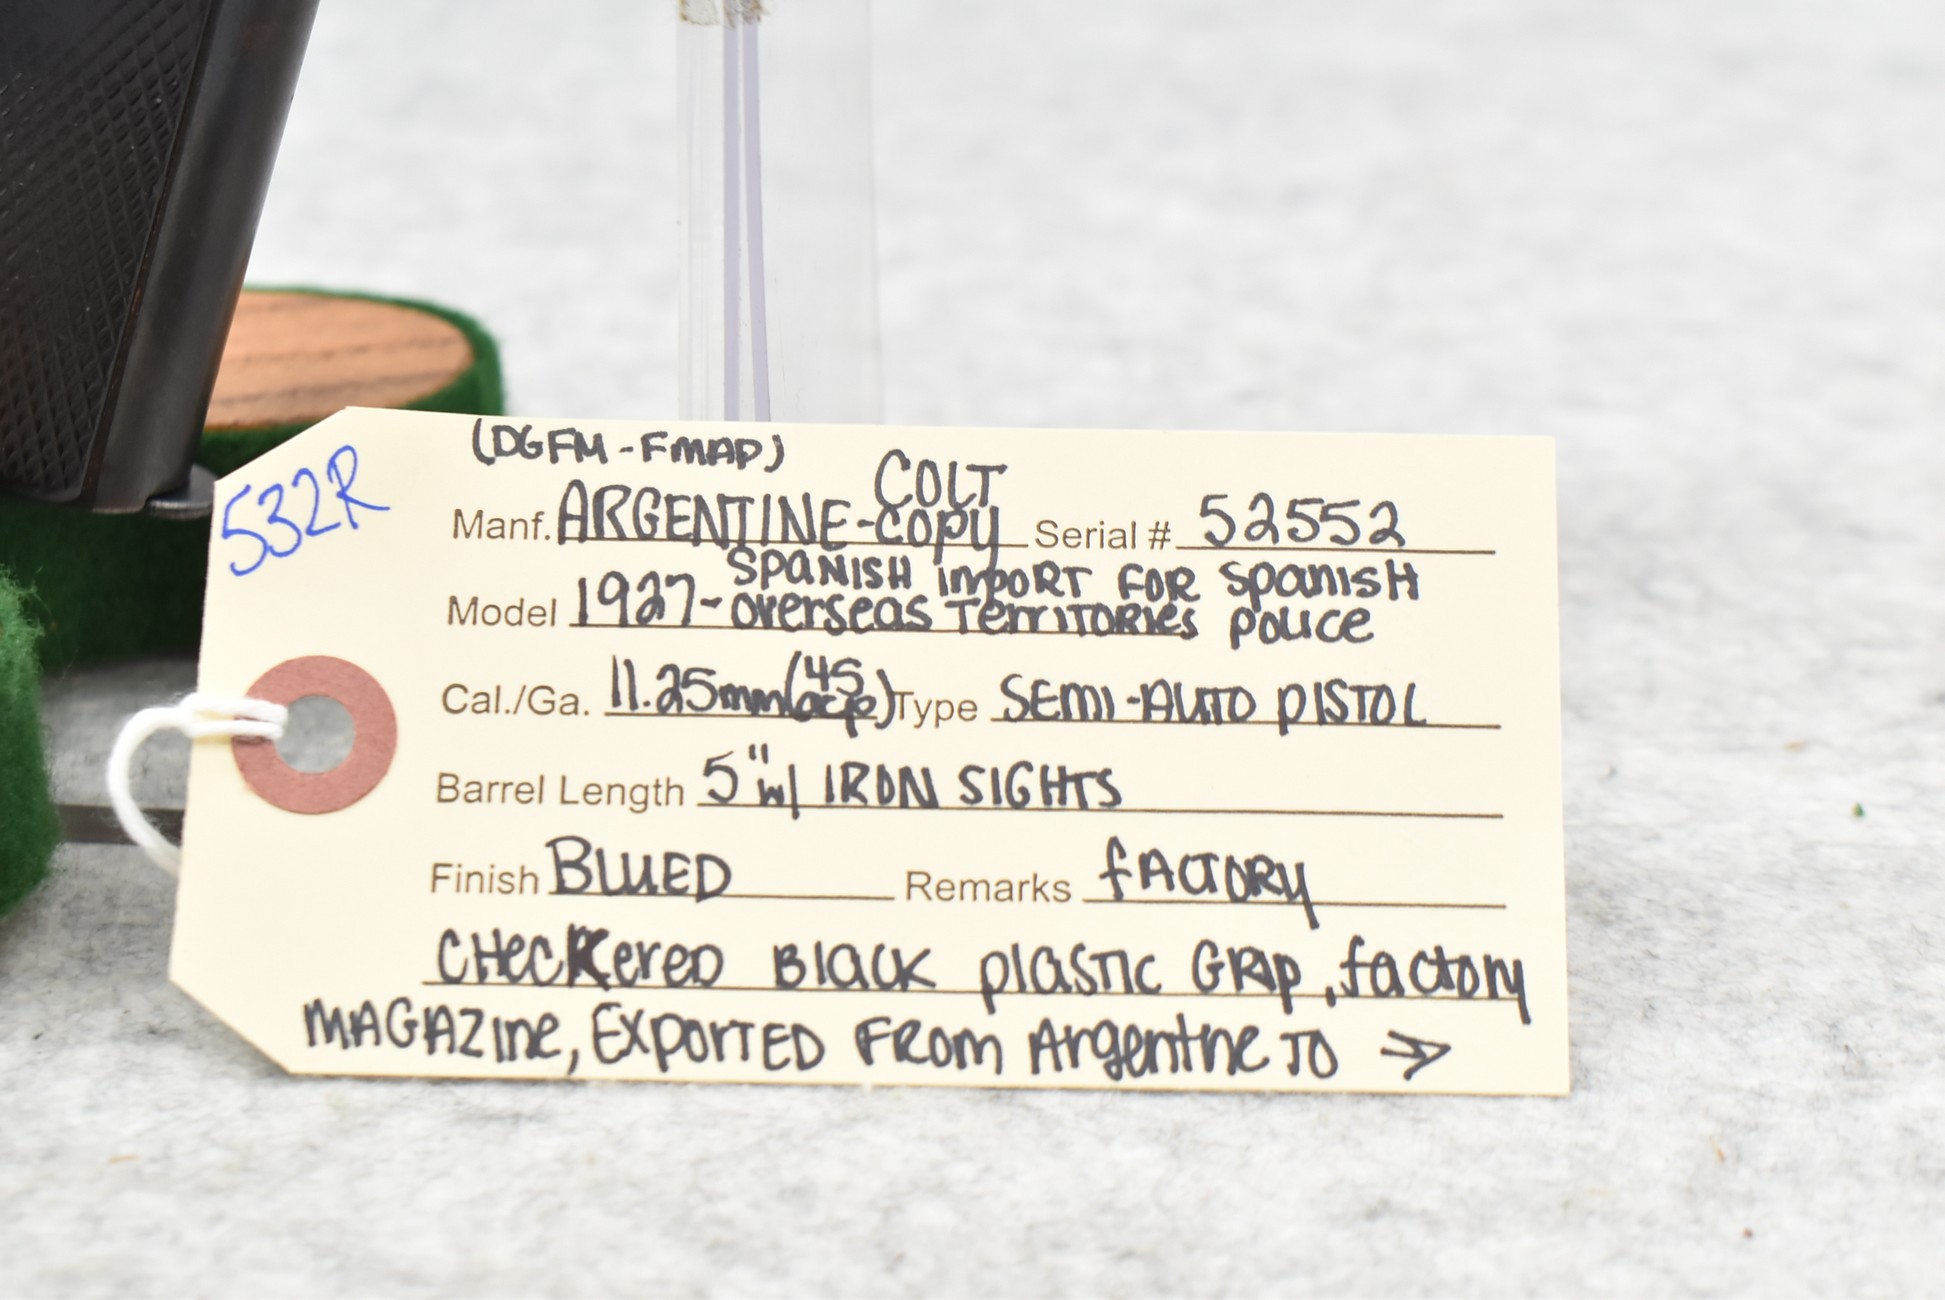 532R
(DGFM-FMAP)
COLT
Manf. ARGENTINE-COPY Serial # 52552
SPANISH IMPORT FOR SPANISH
Model 1927-OVERSEAS TERRITORIES POLICE
Cal./Ga. 11.25mm (45 acp) Type SEMI-AUTO PISTOL
Barrel Length 5" w/ IRON SIGHTS
Finish BLUED Remarks FACTORY
CHECKERED BLACK PLASTIC GRIP, factory
MAGAZINE, EXPORTED FROM Argentine TO →